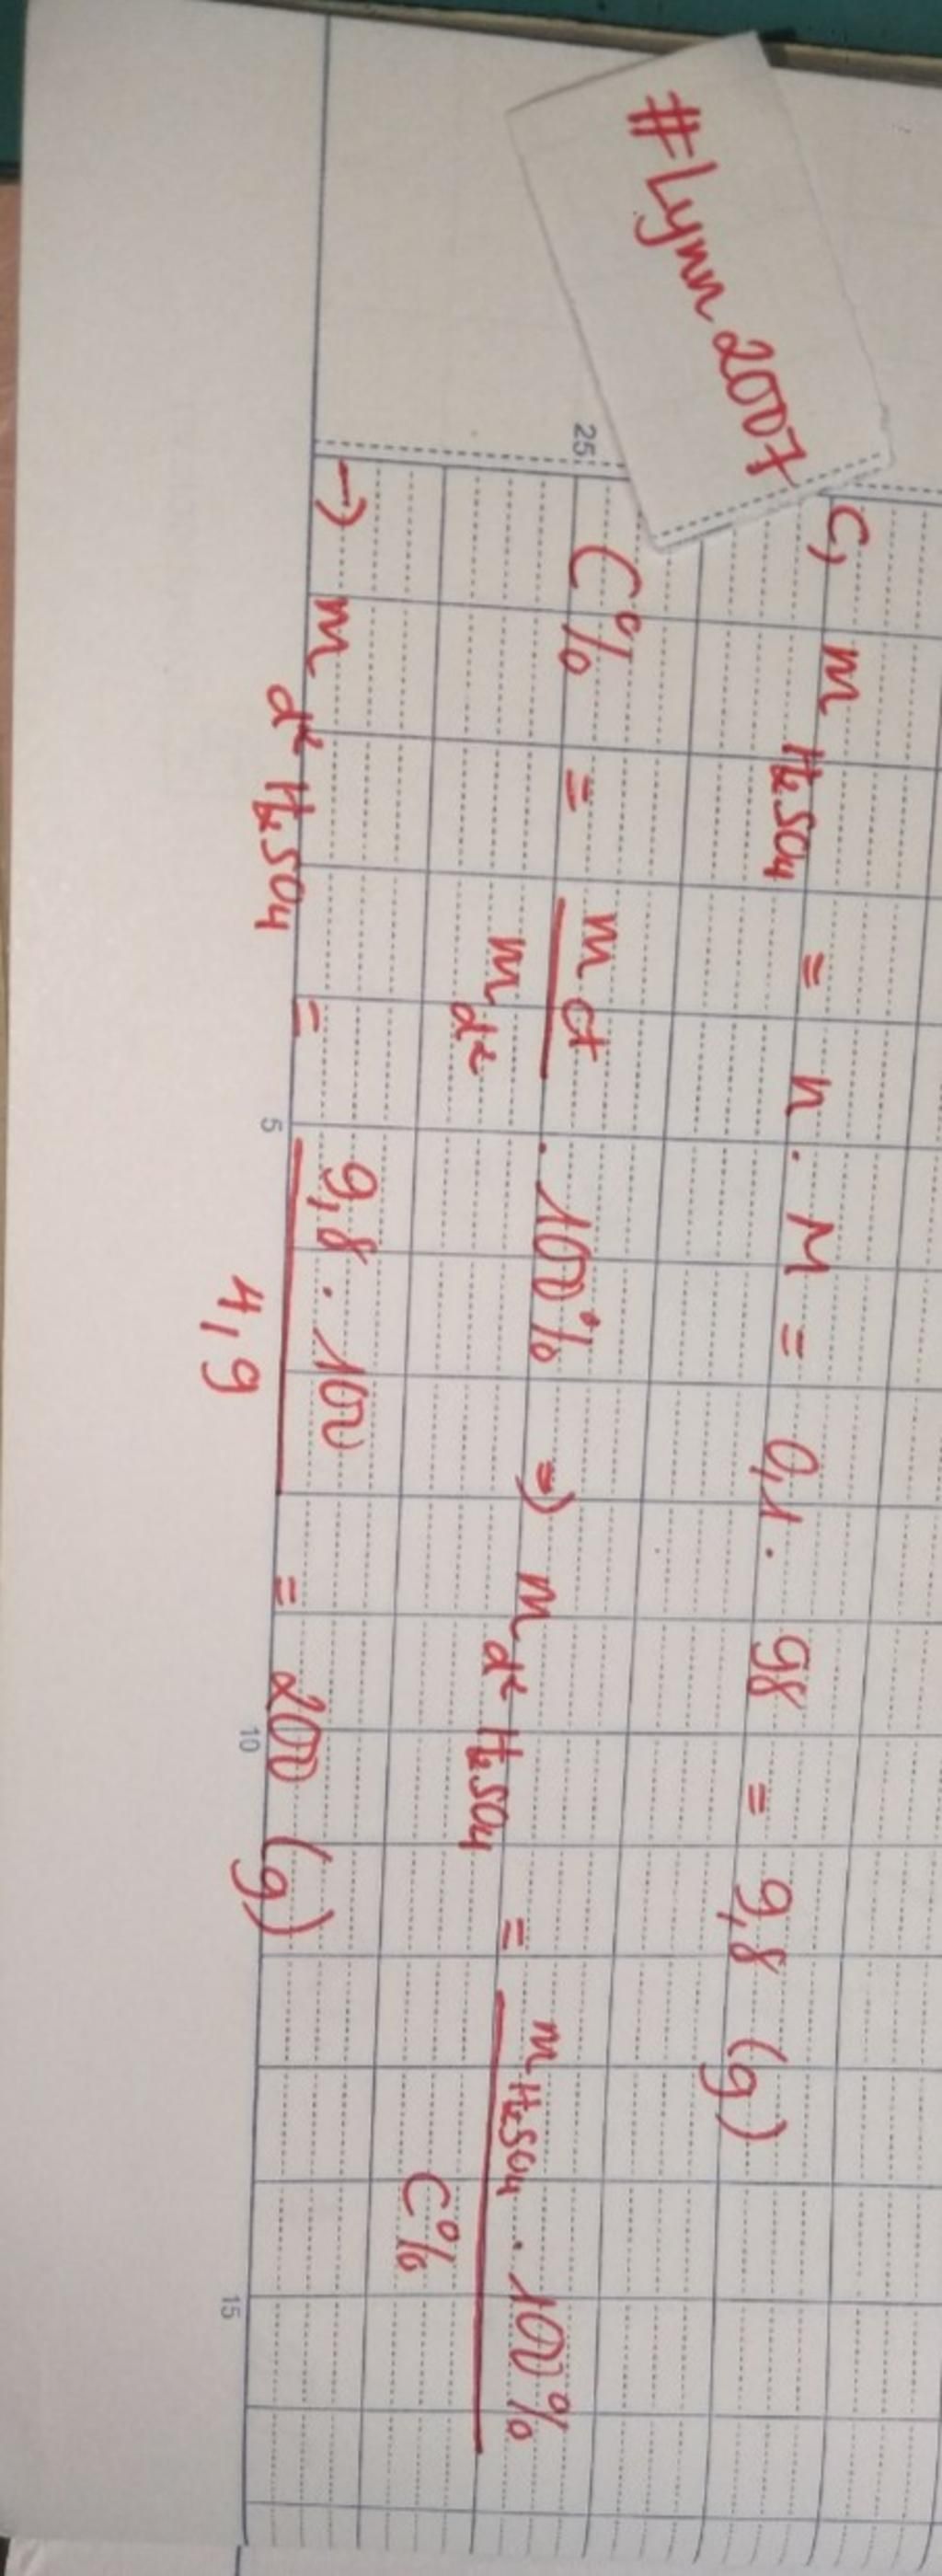 #Lynn2007
c, m H₂SO₄ = n . M = 0,1 . 98 = 9,8 (g)
C% = mct / mdd . 100% => mdd H₂SO₄ = mH₂SO₄ . 100% / C%
→ mdd H₂SO₄ = 9,8 . 100 / 4,9 = 200 (g)
25
5
10
15